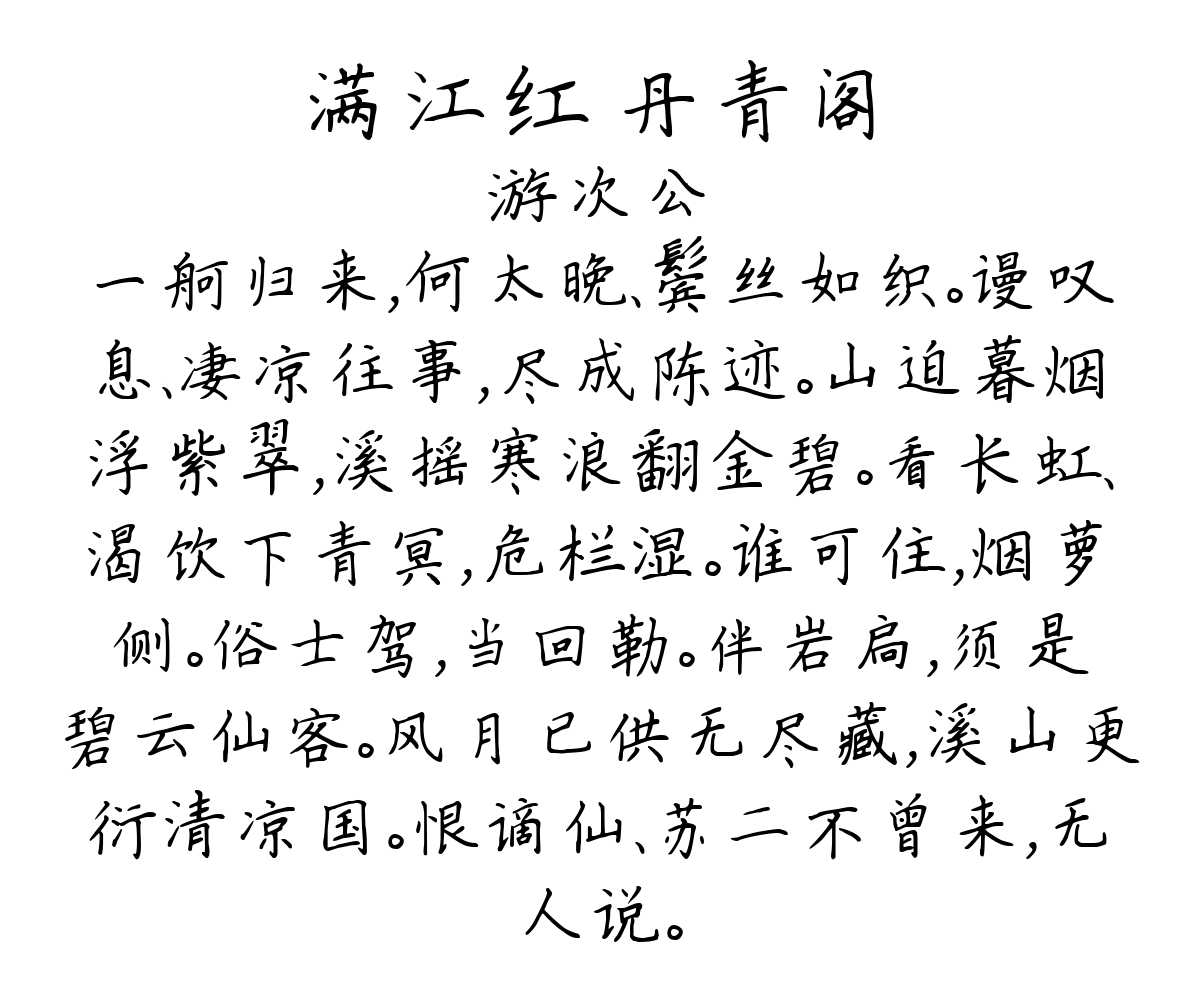 满江红 丹青阁
游次公
一舸归来,何太晚、鬓丝如织。谩叹
息、凄凉往事,尽成陈迹。山迫暮烟
浮紫翠,溪摇寒浪翻金碧。看长虹、
渴饮下青冥,危栏湿。谁可住,烟萝
侧。俗士驾,当回勒。伴岩扃,须是
碧云仙客。风月已供无尽藏,溪山更
衍清凉国。恨谪仙、苏二不曾来,无
人说。